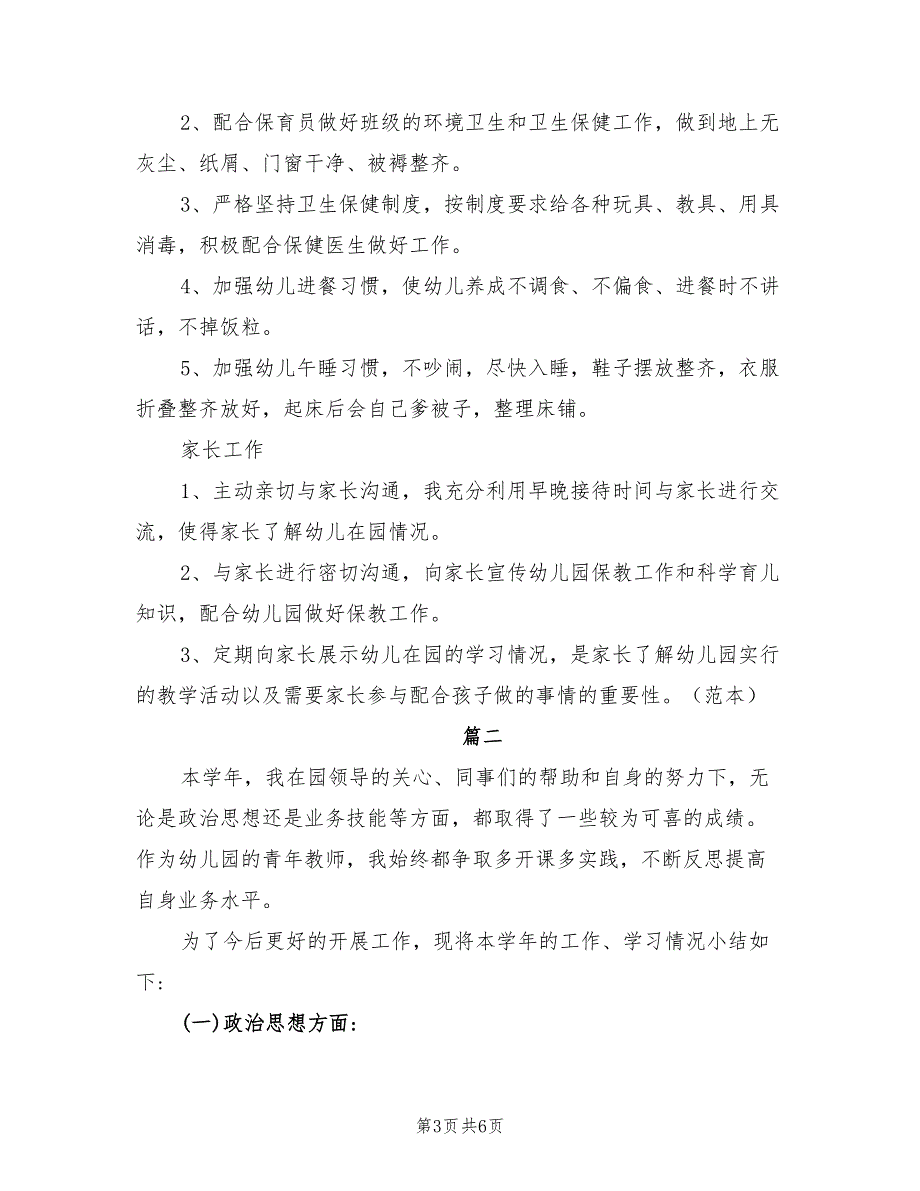 2、配合保育员做好班级的环境卫生和卫生保健工作，做到地上无
灰尘、纸屑、门窗干净、被褥整齐。
3、严格坚持卫生保健制度，按制度要求给各种玩具、教具、用具
消毒，积极配合保健医生做好工作。
4、加强幼儿进餐习惯，使幼儿养成不调食、不偏食、进餐时不讲
话，不掉饭粒。
5、加强幼儿午睡习惯，不吵闹，尽快入睡，鞋子摆放整齐，衣服
折叠整齐放好，起床后会自己爹被子，整理床铺。
家长工作
1、主动亲切与家长沟通，我充分利用早晚接待时间与家长进行交
流，使得家长了解幼儿在园情况。
2、与家长进行密切沟通，向家长宣传幼儿园保教工作和科学育儿
知识，配合幼儿园做好保教工作。
3、定期向家长展示幼儿在园的学习情况，是家长了解幼儿园实行
的教学活动以及需要家长参与配合孩子做的事情的重要性。（范本）
篇二
本学年，我在园领导的关心、同事们的帮助和自身的努力下，无
论是政治思想还是业务技能等方面，都取得了一些较为可喜的成绩。
作为幼儿园的青年教师，我始终都争取多开课多实践，不断反思提高
自身业务水平。
为了今后更好的开展工作，现将本学年的工作、学习情况小结如
下:
(一)政治思想方面:
第3页共6页